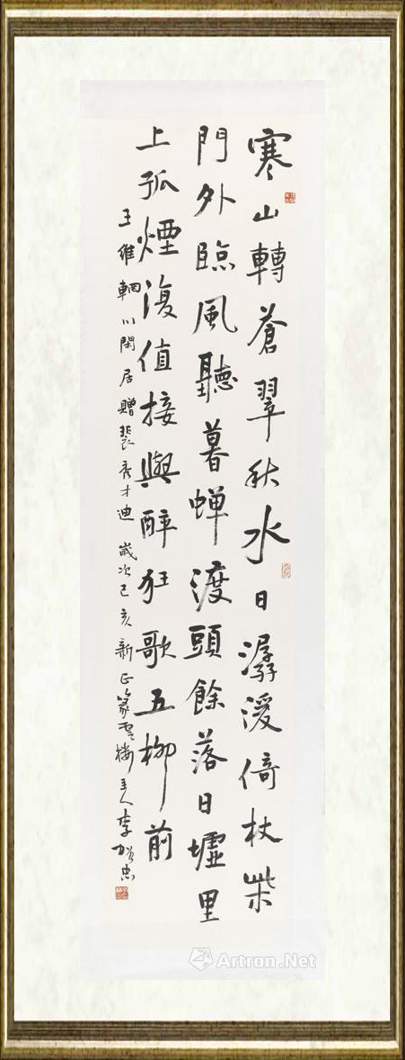 寒山轉蒼翠秋水日潺湲倚杖柴
門外臨風聽暮蟬渡頭餘落日墟里
上孤煙復值接輿醉狂歌五柳前
王維輞川閑居贈裴秀才迪 歲次己亥新正篆雲樓主人李 忠
Artron.Net